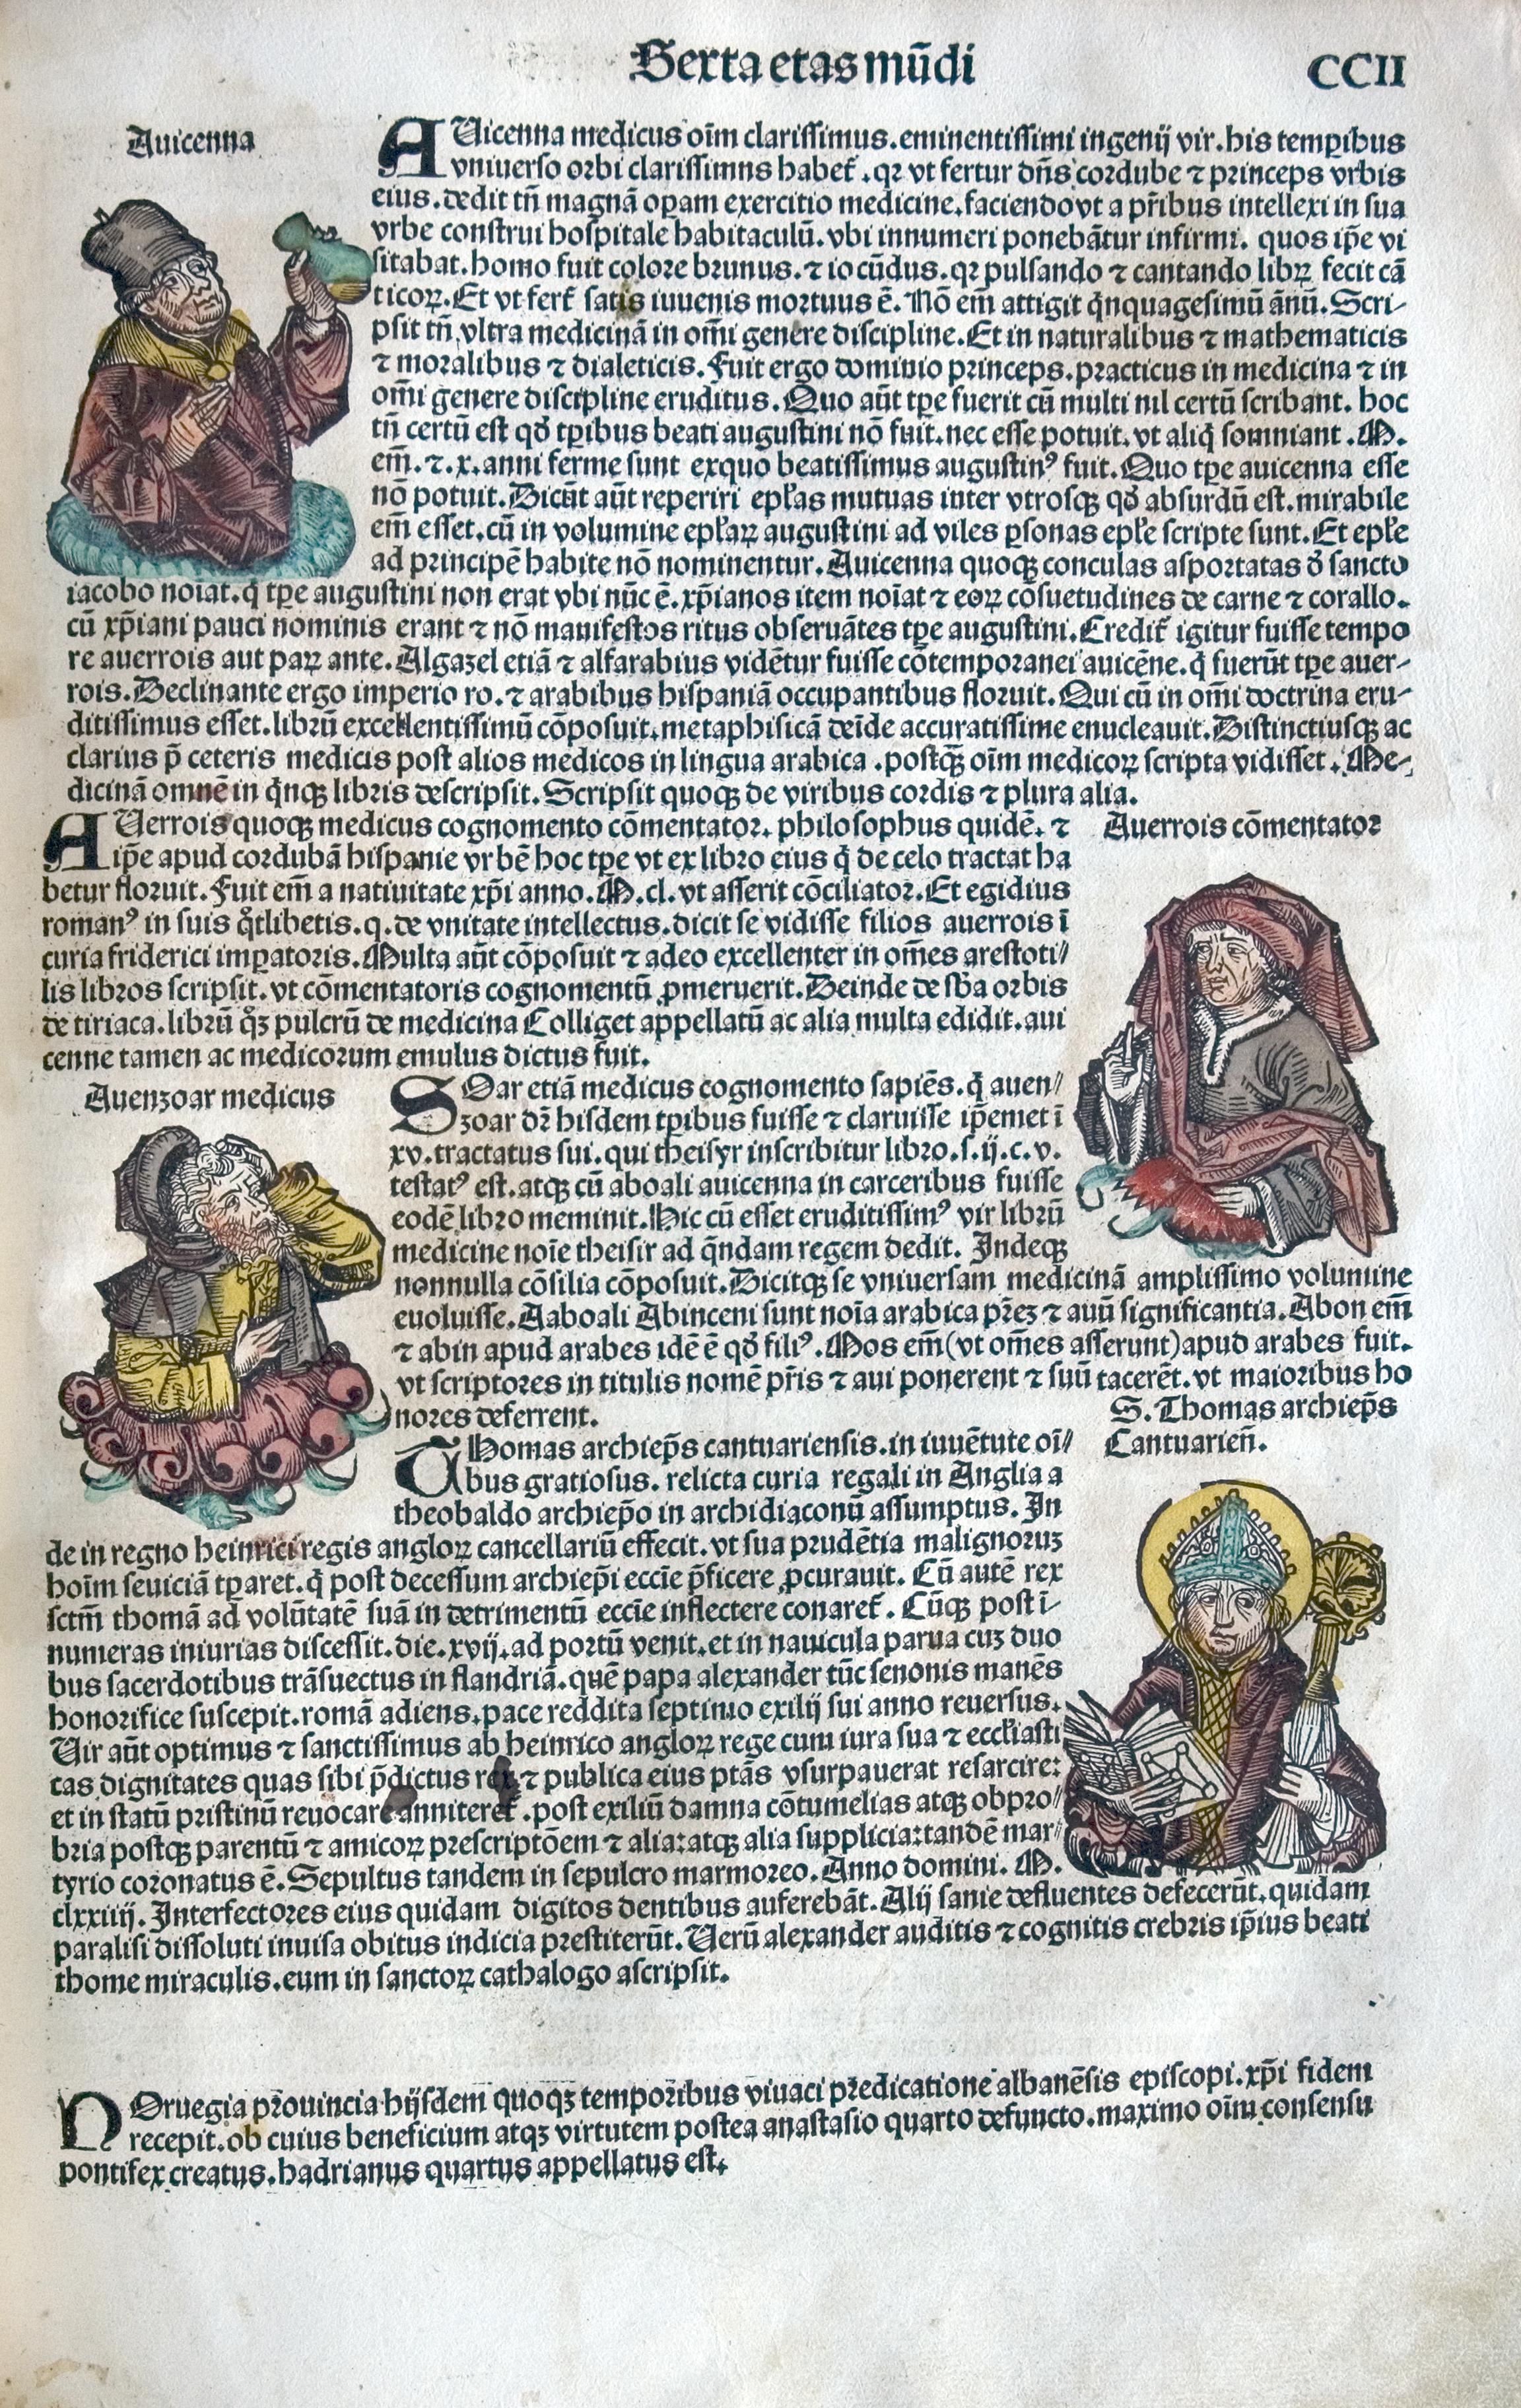 Sexta etas mũdi
CCII
Auicenna
AUicenna medicus oĩm clarissimus. eminentissimi ingenij vir. his temꝑibus
vniuerso orbi clarissimns habet᷑. qꝛ vt fertur dñs cordube ⁊ princeps vrbis
eius. dedit tñ magnã oꝑam exercitio medicine. faciendo vt a pr̃ibus intellexi in sua
vrbe construi hospitale habitaculũ. vbi innumeri ponebãtur infirmi. quos ip̃e vi
sitabat. homo fuit colore brunus. ⁊ iocũdus. qꝛ pulsando ⁊ cantando libꝝ fecit cã
ticoꝝ. Et vt fert᷑ satis iuuenis mortuus ẽ. Nõ em̃ attigit q̃nquagesimũ ãnũ. Scri-
psit tñ vltra medicinã in om̃i genere discipline. Et in naturalibus ⁊ mathematicis
⁊ moralibus ⁊ dialeticis. Fuit ergo dominio princeps. practicus in medicina ⁊ in
om̃i genere discipline eruditus. Quo aũt tꝑe fuerit cũ multi nil certũ scribant. hoc
tñ certũ est qð tꝑibus beati augustini nõ fuit. nec esse potuit. vt aliq̃ somniant. M.
em̃. ⁊. x. anni ferme sunt exquo beatissimus augustinꝰ fuit. Quo tꝑe auicenna esse
nõ potuit. Dicũt aũt reperiri epl̃as mutuas inter vtrosqꝫ qð absurdũ est. mirabile
em̃ esset. cũ in volumine epl̃aꝝ augustini ad viles ꝑsonas epl̃e scripte sunt. Et epl̃e
ad principẽ habite nõ nominentur. Auicenna quoqꝫ conculas asportatas ð sancto
iacobo noĩat. q̃ tꝑe augustini non erat vbi nũc ẽ. xp̃ianos item noĩat ⁊ eoꝝ cõsuetudines de carne ⁊ corallo.
cũ xp̃iani pauci nominis erant ⁊ nõ manifestos ritus obseruãtes tꝑe augustini. Credit᷑ igitur fuisse tempo
re auerrois aut paꝝ ante. Algazel etiã ⁊ alfarabius vidẽtur fuisse cõtemporanei auicẽne. q̃ fuerũt tꝑe auer-
rois. Declinante ergo imperio ro. ⁊ arabibus hispaniã occupantibus floruit. Qui cũ in om̃i doctrina eru-
ditissimus esset. librũ excellentissimũ cõposuit. metaphisicã deĩde accuratissime enucleauit. Distinctiusqꝫ ac
clarius p̃ ceteris medicis post alios medicos in lingua arabica. postqꝫ̃ oĩm medicoꝝ scripta vidisset. Me-
dicinã omnẽ in q̃nqꝫ libris descripsit. Scripsit quoqꝫ de viribus cordis ⁊ plura alia.
Auerrois cõmentator
AUerrois quoqꝫ medicus cognomento cõmentator. philosophus quidẽ. ⁊
ip̃e apud cordubã hispanie vrbẽ hoc tꝑe vt ex libro eius q̃ de celo tractat ha
betur floruit. Fuit em̃ a natiuitate xp̃i anno. M. cl. vt asserit cõciliator. Et egidius
romanꝰ in suis q̊tlibetis. q. de vnitate intellectus. dicit se vidisse filios auerrois ĩ
curia friderici imꝑatoris. Multa aũt cõposuit ⁊ adeo excellenter in om̃es arestoti-
lis libros scripsit. vt cõmentatoris cognomentũ ꝓmeruerit. Deinde de sb̃a orbis
de tiriaca. librũ q̊ꝫ pulcrũ de medicina Colliget appellatũ ac alia multa edidit. aui
cenne tamen ac medicorum emulus dictus fuit.
Auenzoar medicus
SOar etiã medicus cognomento sapiẽs. q̃ auen-
zoar dꝛ̃ hisdem tꝑibus fuisse ⁊ claruisse ip̃emet ĩ
xv. tractatus sui. qui theisyr inscribitur libro. s. ij. c. v.
testatꝰ est. atqꝫ cũ aboali auicenna in carceribus fuisse
eodẽ libro meminit. Hic cũ esset eruditissimꝰ vir librũ
medicine noĩe theisir ad q̃ndam regem dedit. Indeqꝫ
nonnulla cõsilia cõposuit. Dicitqꝫ se vniuersam medicinã amplissimo volumine
euoluisse. Aaboali Abinceni sunt noĩa arabica pr̃eꝫ ⁊ auũ significantia. Abon em̃
⁊ abin apud arabes idẽ ẽ qð filiꝰ. Mos em̃ (vt om̃es asserunt) apud arabes fuit.
vt scriptores in titulis nomẽ pr̃is ⁊ aui ponerent ⁊ suũ tacerẽt. vt maioribus ho
nores deferrent.
S. Thomas archiep̃s
Cantuarieñ.
THomas archiep̃s cantuariensis. in iuuẽtute oĩ-
bus gratiosus. relicta curia regali in Anglia a
theobaldo archiep̃o in archidiaconũ assumptus. In
de in regno heinrici regis angloꝝ cancellariũ effecit. vt sua prudẽtia malignoruꝫ
hoĩm seuiciã tꝑaret. q̃ post decessum archiep̃i eccĩe p̃ficere ꝓcurauit. Cũ autẽ rex
sctm̃ thomã ad volũtatẽ suã in detrimentũ eccĩe inflectere conaret᷑. Cũqꝫ post ĩ-
numeras iniurias discessit. die. xvij. ad portũ venit. et in nauicula parua cuꝫ duo
bus sacerdotibus trãsuectus in flandriã. quẽ papa alexander tũc senonis manẽs
honorifice suscepit. romã adiens. pace reddita septimo exilij sui anno reuersus.
Uir aũt optimus ⁊ sanctissimus ab heinrico angloꝝ rege cum iura sua ⁊ eccl̃iasti
cas dignitates quas sibi p̃dictus rex ⁊ publica eius ptãs vsurpauerat resarcire:
et in statũ pristinũ reuocare anniteret᷑. post exiliũ damna cõtumelias atqꝫ obpro-
bria postqꝫ parentũ ⁊ amicoꝝ prescriptõem ⁊ alia: atqꝫ alia supplicia: tandẽ mar-
tyrio coronatus ẽ. Sepultus tandem in sepulcro marmoreo. Anno domini. M.
clxxiiij. Interfectores eius quidam digitos dentibus auferebãt. Alij sanie defluentes defecerũt. quidam
paralisi dissoluti inuisa obitus indicia prestiterũt. Uerũ alexander auditis ⁊ cognitis crebris ip̃ius beati
thome miraculis. eum in sanctoꝝ cathalogo ascripsit.
NOruegia prouincia hijsdem quoqꝫ temporibus viuaci predicatione albanẽsis episcopi. xp̃i fidem
recepit. ob cuius beneficium atqꝫ virtutem postea anastasio quarto defuncto. maximo oĩm consensu
pontifex creatus. hadrianus quartus appellatus est.